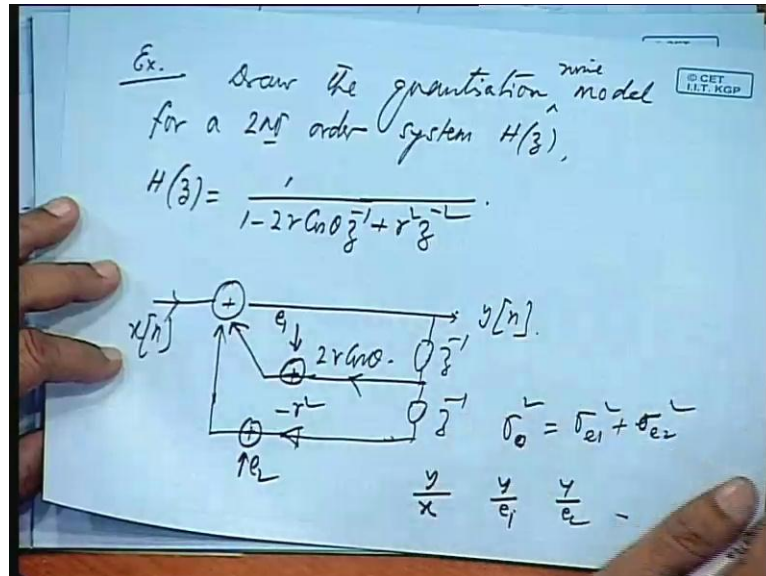 Ex. Draw the quantisation noise model
© CET
I.I.T. KGP
for a 2nd order system H(z),
H(z) = 1 / (1 - 2r Cosθ z⁻¹ + r² z⁻²).
x[n] + y[n].
e₁ + 2r Cosθ. z⁻¹
-r² z⁻¹
+ e₂
σ₀² = σe1² + σe2²
y/x y/e₁ y/e₂ -